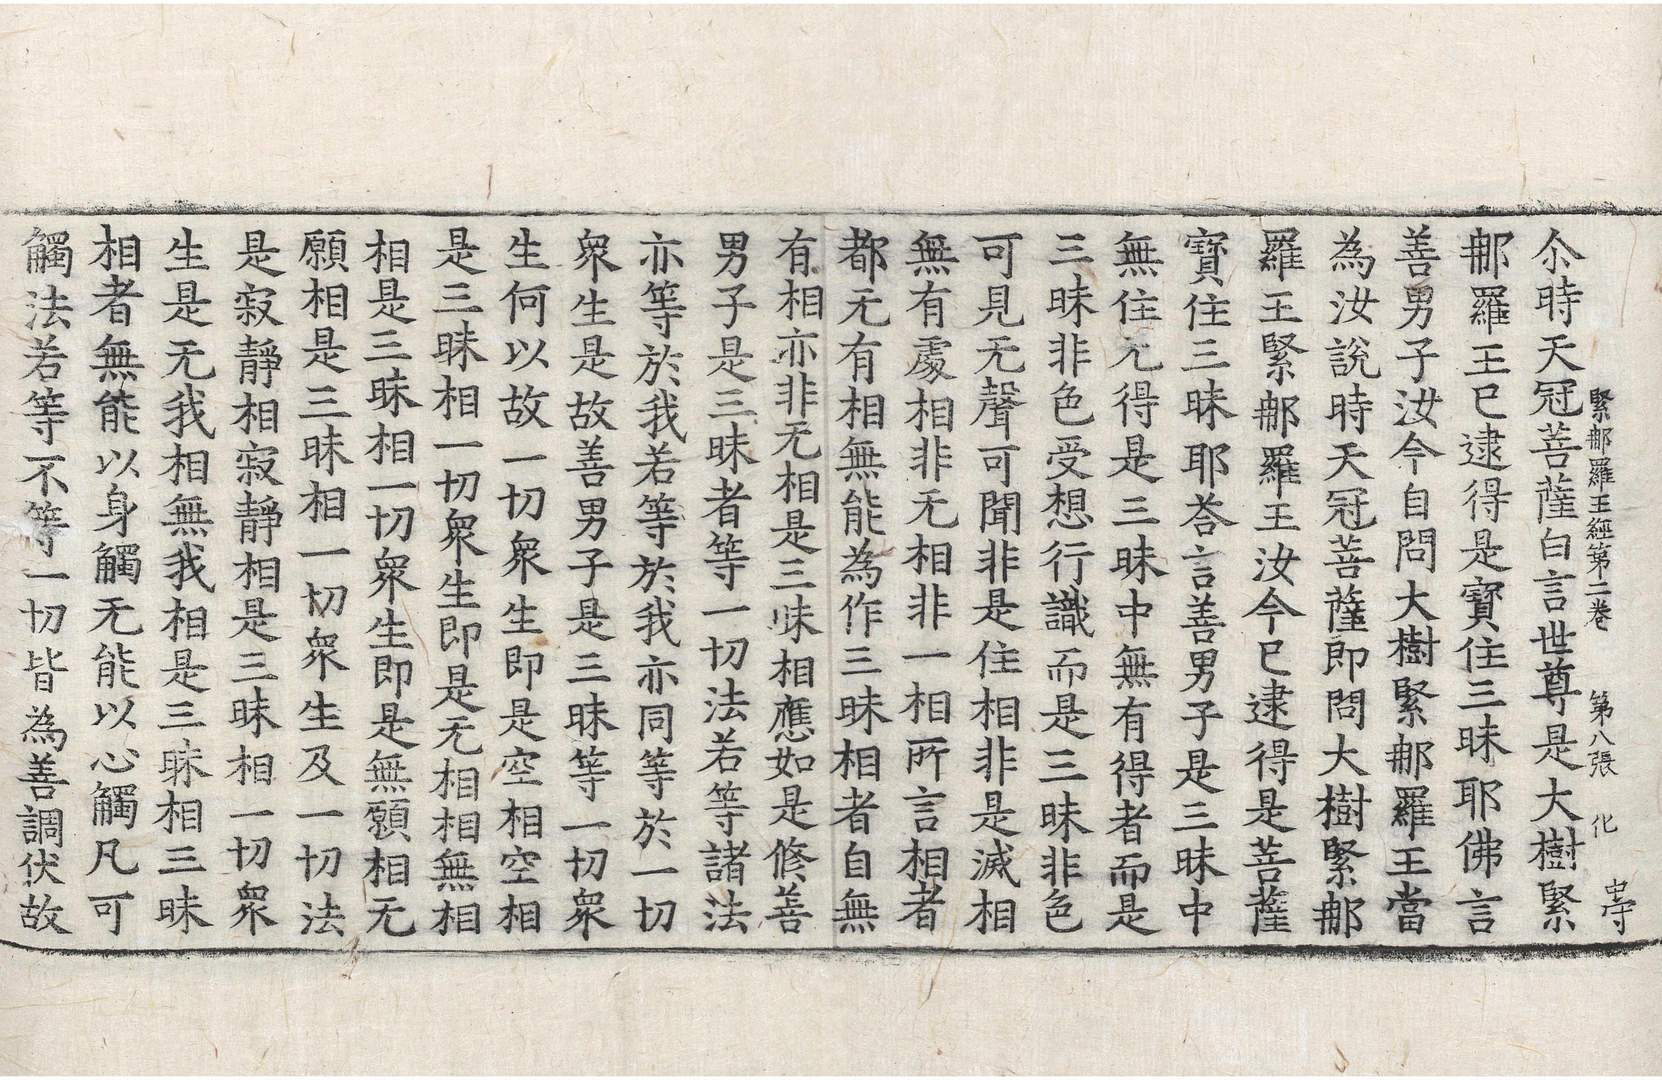 緊那羅王經第二卷　第八張　化
尒時天冠菩薩白言世尊是大樹緊
那羅王已逮得是寶住三昧耶佛言
善男子汝今自問大樹緊那羅王當
為汝說時天冠菩薩即問大樹緊那
羅王緊那羅王汝今已逮得是菩薩
寶住三昧耶荅言善男子是三昧中
無住无得是三昧中無有得者而是
三昧非色受想行識而是三昧非色
可見无聲可聞非是住相非是滅相
無有處相非无相非一相所言相者
都无有相無能為作三昧相者自無
有相亦非无相是三昧相應如是修善
男子是三昧者等一切法若等諸法
亦等於我若等於我亦同等於一切
衆生是故善男子是三昧等一切衆
生何以故一切衆生即是空相空相
是三昧相一切衆生即是无相相無相
相是三昧相一切衆生即是無願相无
願相是三昧相一切衆生及一切法
是寂靜相寂靜相是三昧相一切衆
生是无我相無我相是三昧相三昧
相者無能以身觸无能以心觸凡可
觸法若等不等一切皆為善調伏故